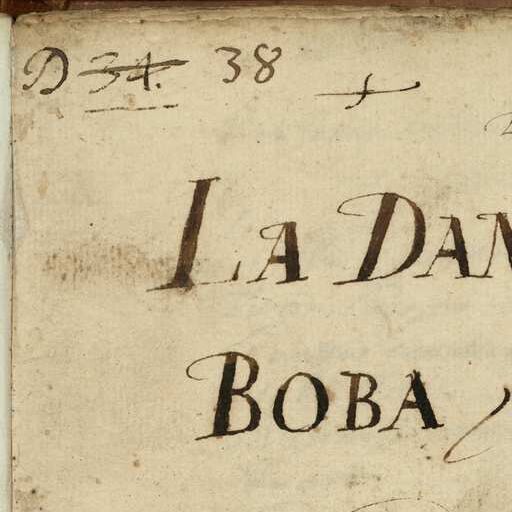 D 34. 38
LA DAM
BOBA